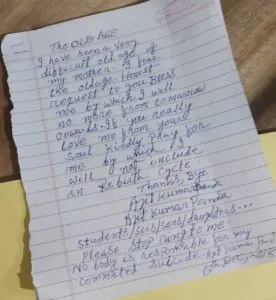 The OLD AGE
I have seen a very
difficult old age of
my mother. I fear
the oldage. Honest
request to you Bless
me by which I will
no more from tomorrow
onwards. If you really
love me from your
soul kindly pray for
me by which I
will not include
in Rebirth Cycle.
Thanks, Bye
Ajit Kumar Panda
Ajit Kumar Panda
Students/Sirs/Sons/daughters...
Please stop crying to me.
No body is responsible for my
committed suicide
Dec, 2018